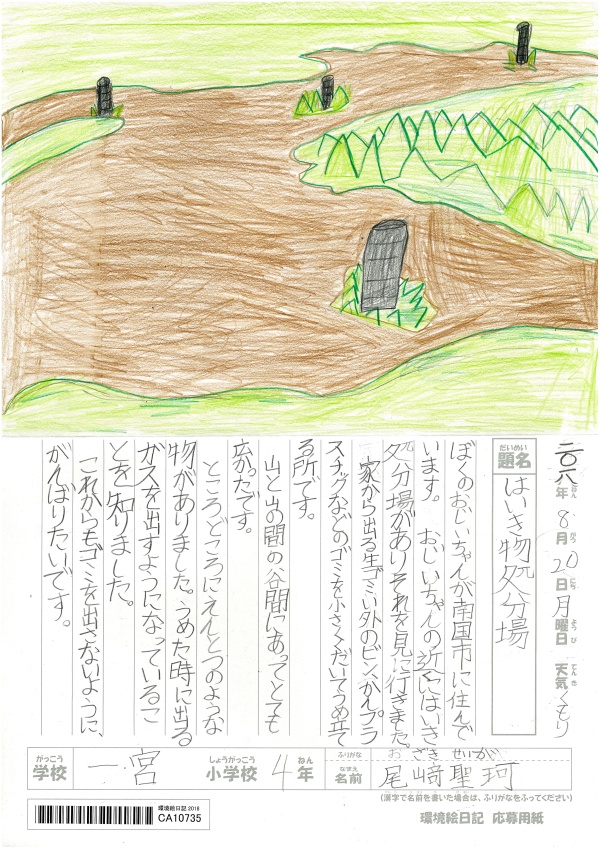 二〇一八年 8月20日月曜日 天気くもり
ねん がつ にち ようび てんき
だいめい
題名 はいき物処分場
ぼくのおじいちゃんが南国市に住んで
います。おじいちゃんの近くにはいき
処分場がありそれを見に行きました。
家から出る生ゴミい外のビン、かん、プラ
スチックなどのゴミを小さくくだいてうめ立て
る所です。
山と山の間の谷間にあってとても
広かったです。
ところどころにえんとつのような
物がありました。うめた時に出る
ガスを出すようになっているこ
とを知りました。
これからもゴミを出さないように、
がんばりたいです。
がっこう
学校 一宮 しょうがっこう 小学校 4年 ねん
ふりがな おざき せいが
なまえ
名前 尾﨑聖珂
(漢字で名前を書いた場合は、ふりがなをふってください)
環境絵日記 2018
CA10735
環境絵日記 応募用紙